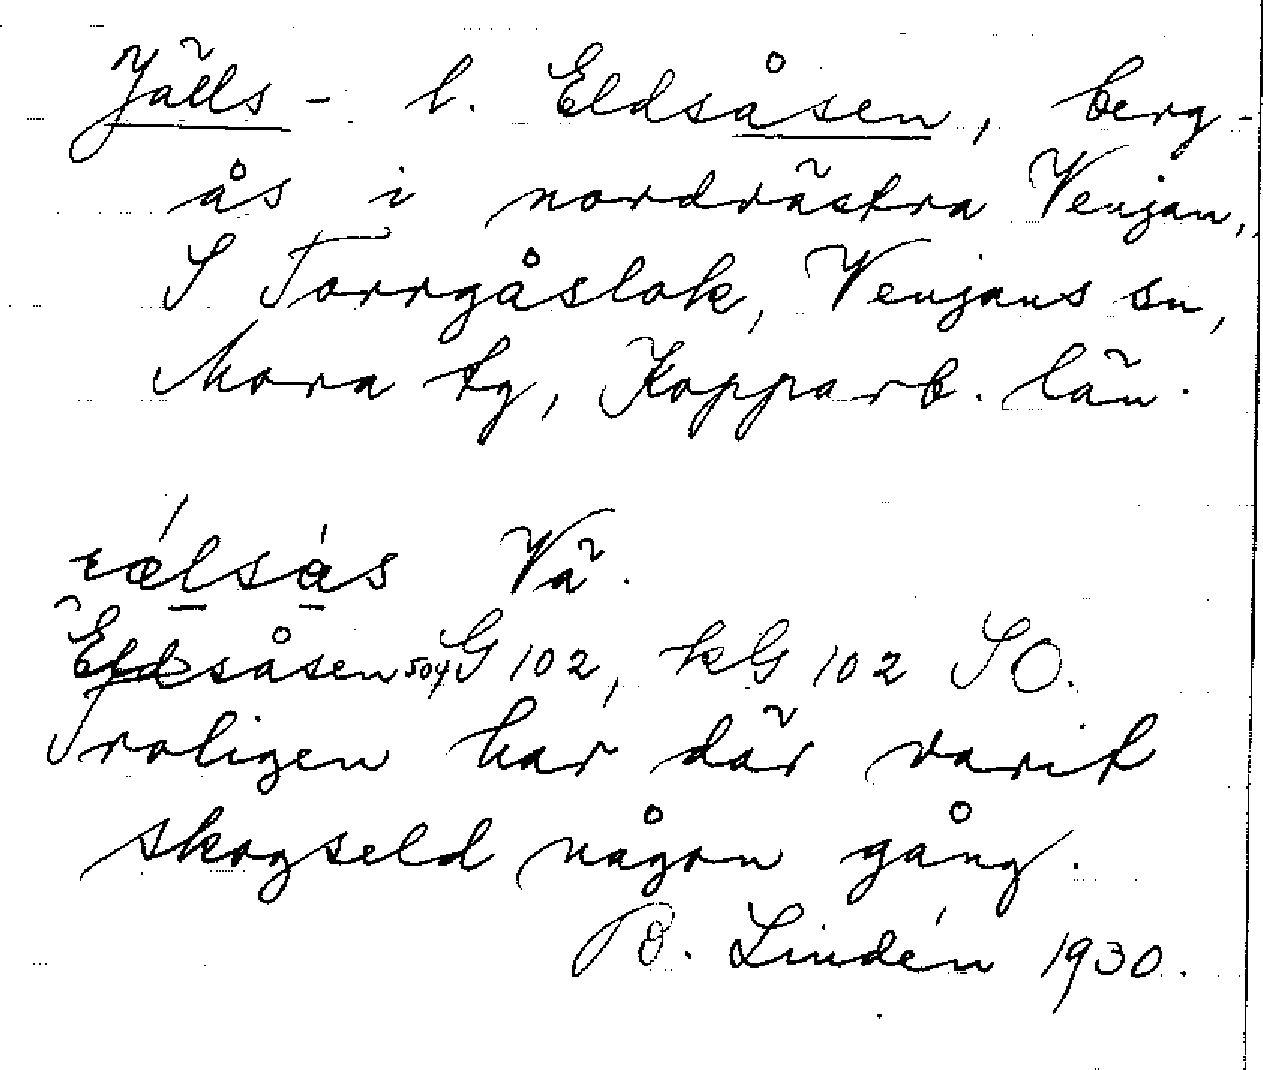 Jälls- l. Eldsåsen, berg-
ås i nordvästra Venjan,
S Torrgåslok, Venjans sn,
Mora tg, Kopparb. län.
Vä.
Eldsåsen 504 G 102, kG 102 SO.
Troligen har där varit
skogseld någon gång.
B. Lindén 1930.